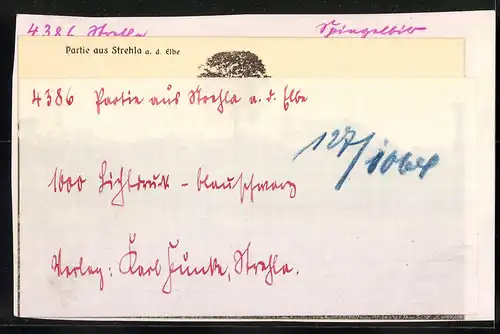 4386 Strehla Spiegelbild
Partie aus Strehla a. d. Elbe
4386 Partie aus Strehla a. d. Elbe
127/1064
1000 Lichtdruck – blauschwarz
Verlag: Karl Funke, Strehla.